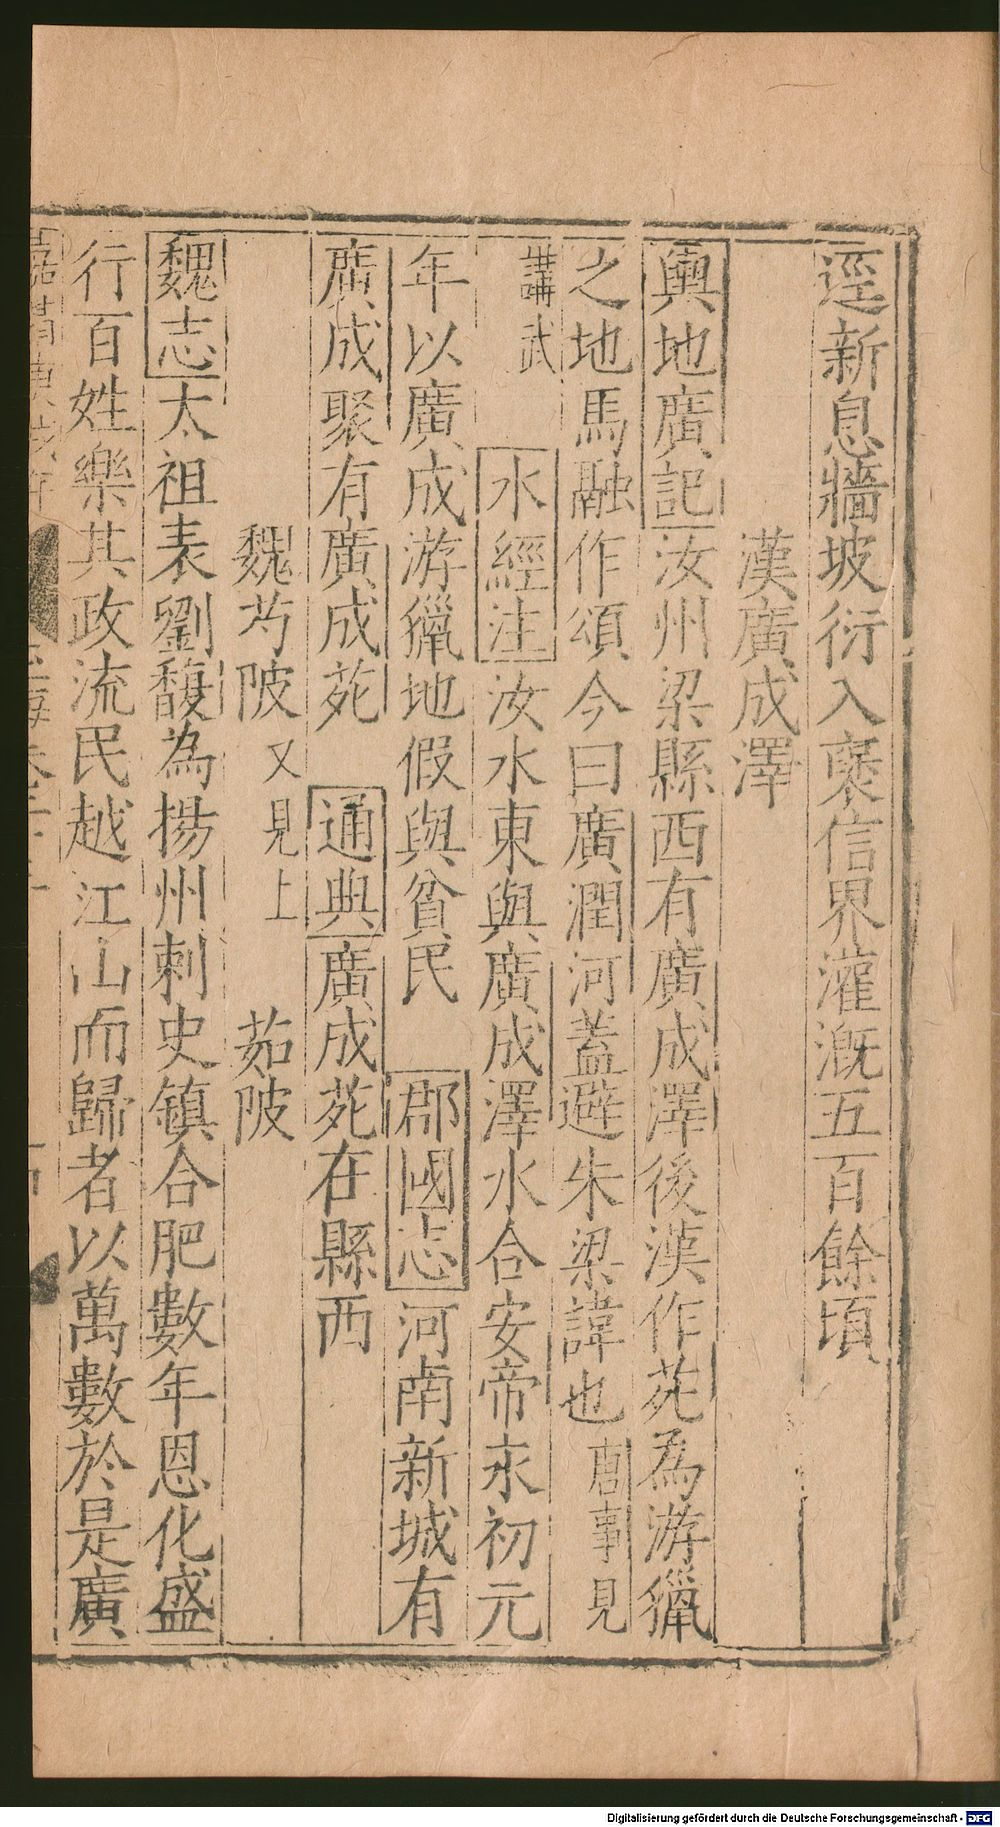 逕新息牆坡衍入襃信界灌漑五百餘頃
漢廣成澤
輿地廣記汝州梁縣西有廣成澤後漢作苑爲游獵
之地馬融作頌今曰廣潤河蓋避朱梁諱也唐事見
講武 水經注汝水東與廣成澤水合安帝永初元
年以廣成游獵地假與貧民 郡國志河南新城有
廣成聚有廣成苑 通典廣成苑在縣西
魏芍陂又見上 茹陂
魏志太祖表劉馥為揚州刺史鎮合肥數年恩化盛
行百姓樂其政流民越江山而歸者以萬數於是廣
Digitalisierung gefördert durch die Deutsche Forschungsgemeinschaft - DFG